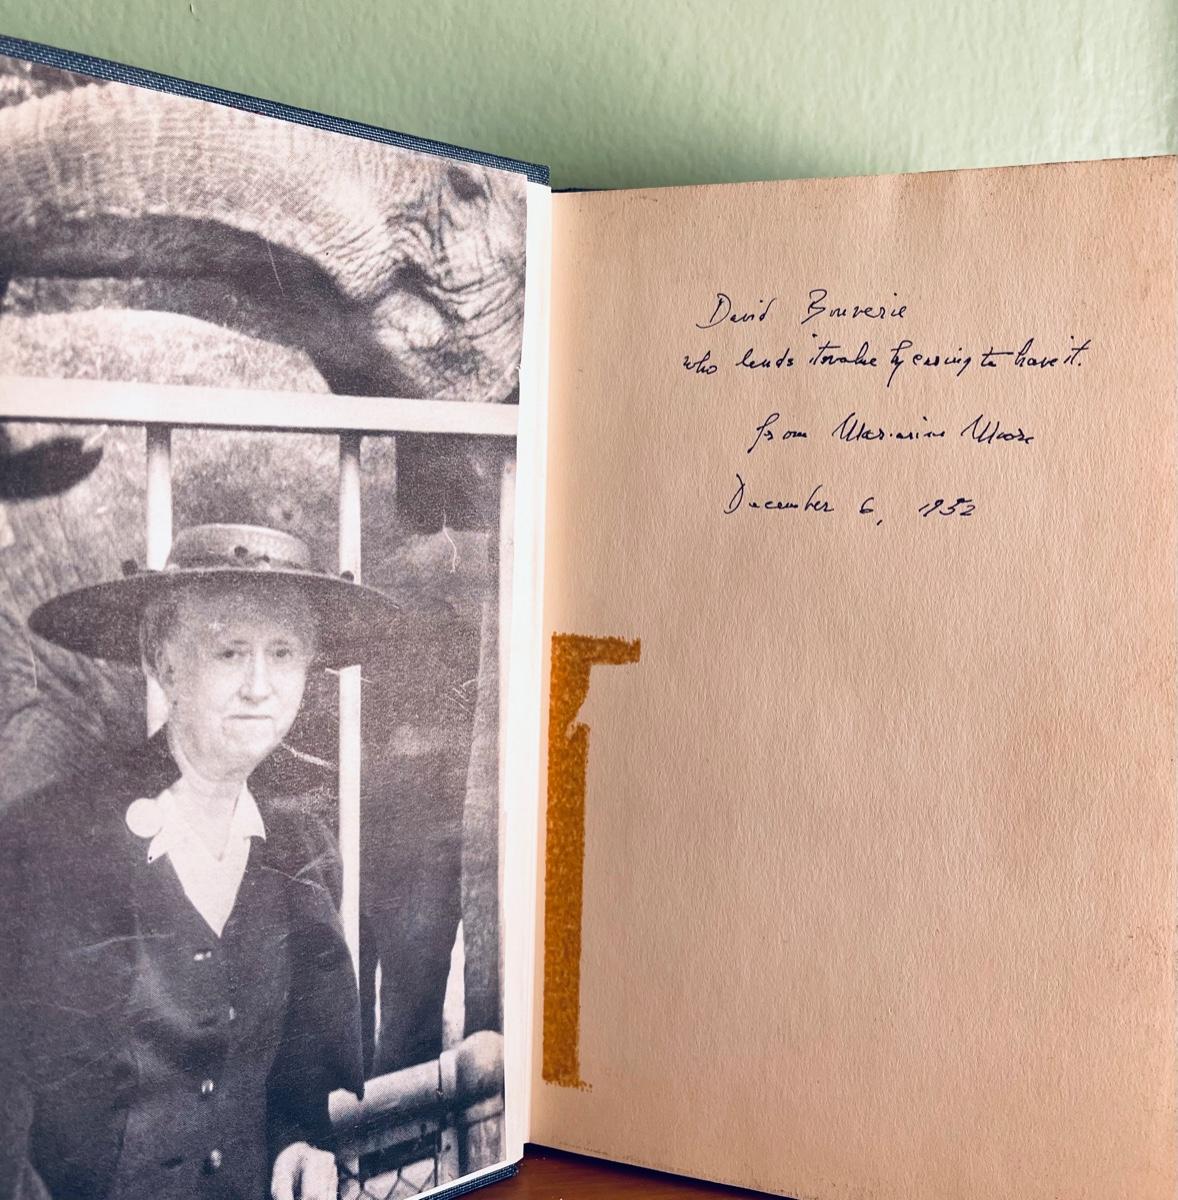 David Bouverie
who lends it value by caring to have it.
from Marianne Moore
December 6, 1952